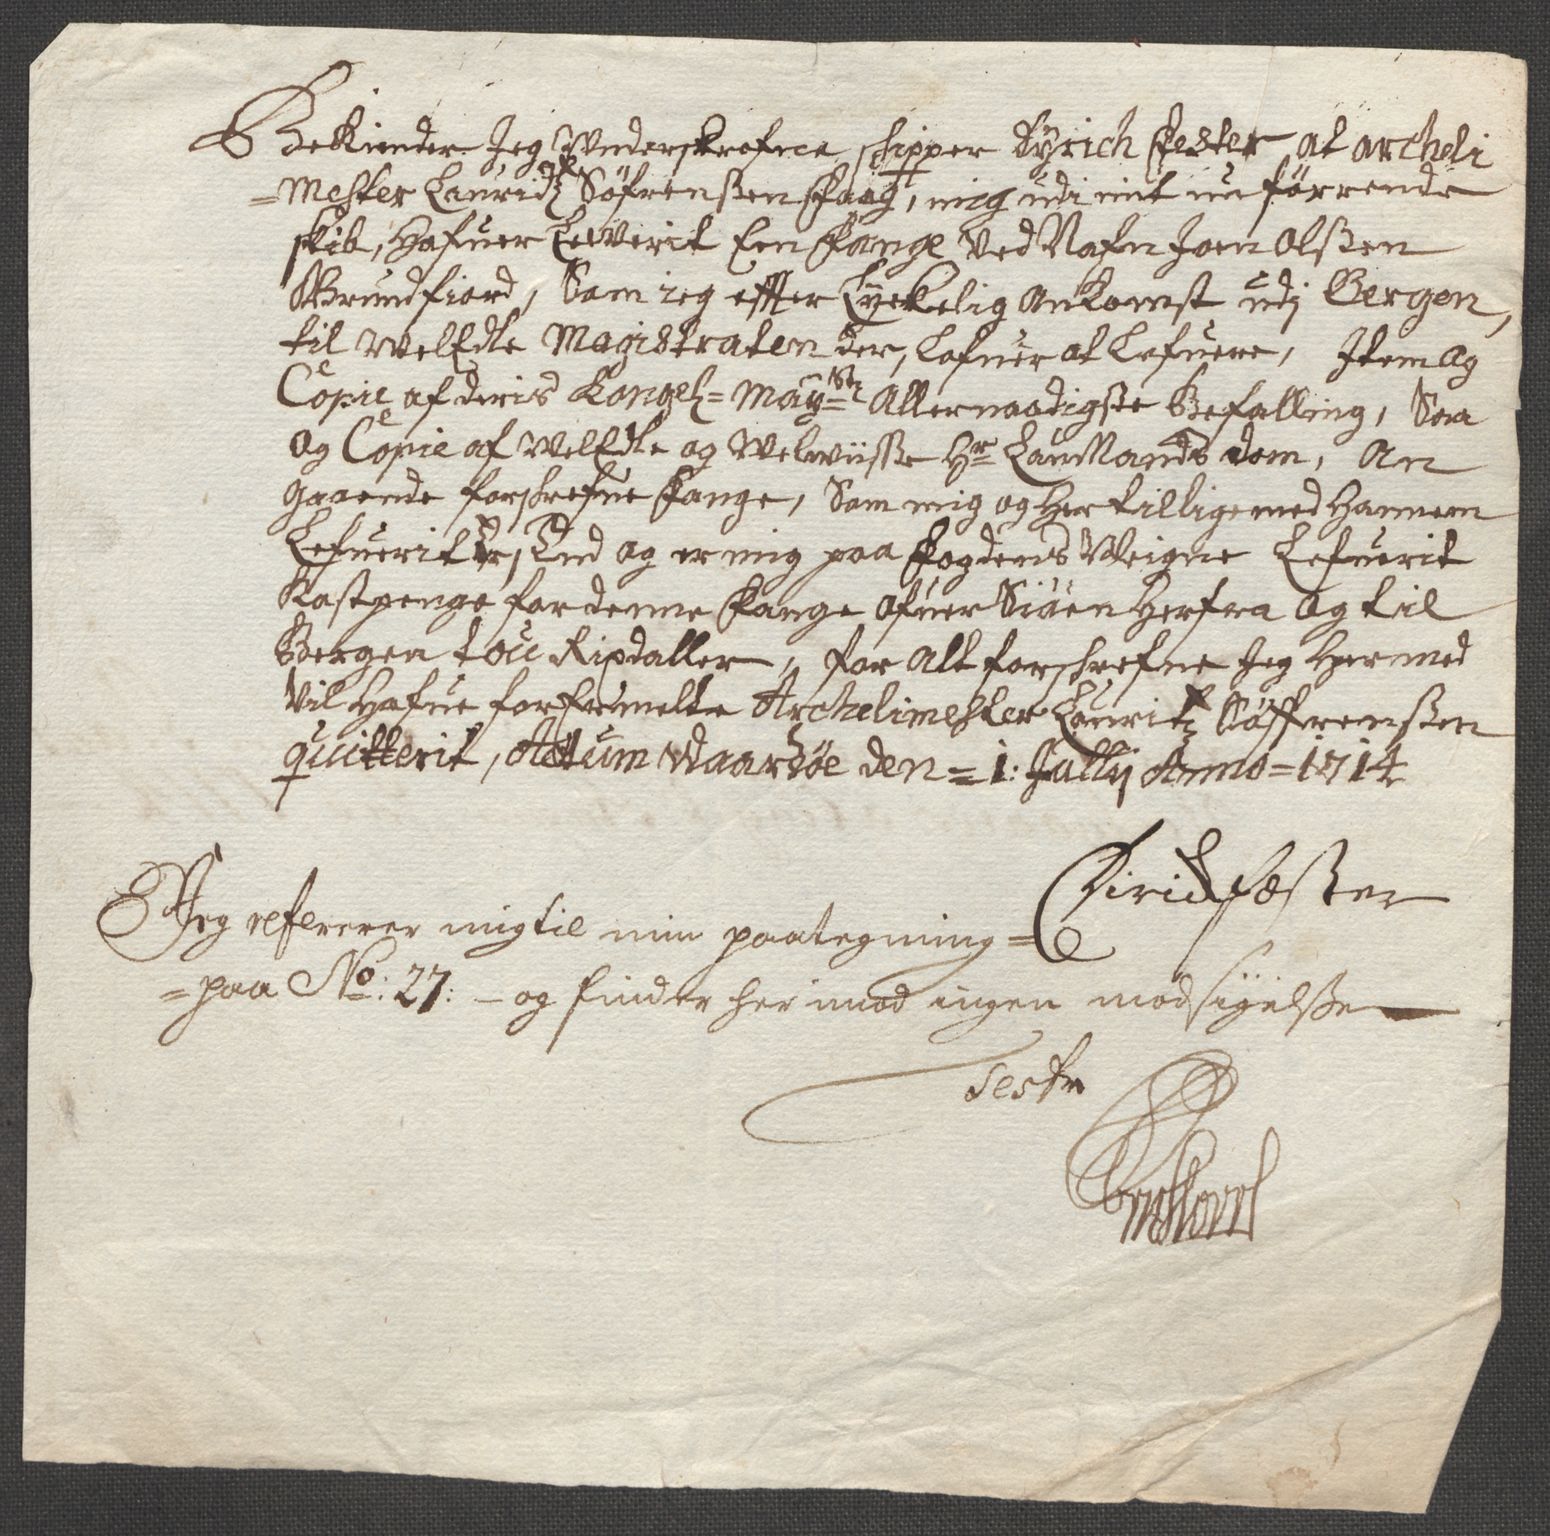 Bekiender Jeg Underskrefne schipper Dyrich Fester at archeli
=Mester Lauridz Söfrenssen Faag, mig udi mit un förrende
skib, Hafuer Lewerit Een Fange Ved Nafn Joen Olssen
Grundfiord, Som ieg effter Lyckelig Ankomst udj Bergen,
til WelEdle Magistraten der, Lofuer at Lefuere, Item og
Copie af deris Kongel= May=tz Allernaadigste Befalling, Saa
og Copie af WelEdle og Welwiisse Hr LauMands dom, An
gaaende forschrefne Fange, Som mig og Her tillige med Hannem
Lefuerit Er, End og er mig paa Fogdens Weigne Lefuerit
Kostpenge for denne Fange ofuer Siöen Herfra og til
Bergen toe Ripdaller, for Alt forschrefne Jeg Hermed
Vil Hafue forermelte Archelimester Lauritz Söffrenssen
quitterit, Actum Waardöe den = 1: Jullij Anno = 1714
Dirick fæster
Jeg refererer mig til min paategning =
= paa No: 27: - og finder her imod ingen modsigelsse
Testr